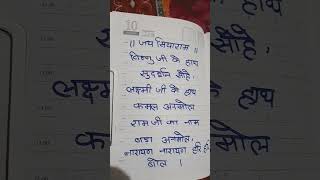 10
॥ जय सियाराम ॥
विष्णु जी के हाथ
सुदर्शन सोहे,
लक्ष्मी जी के हाथ
कमल अनमोल
राम जी का नाम
बडा अनमोल,
नारायण नारायण हरि हरि
बोल ।